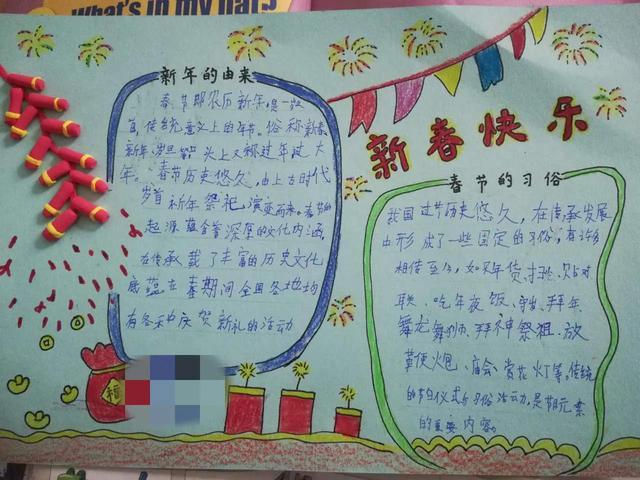 What's in my hat?
新春快乐
新年的由来
春节即农历新年,是一岁
首,传统意义上的年节。俗称新春、
新年
头上又称过年过大
年。春节历史悠久,由上古时代
岁首祈年祭祀演变而来。春节的
起源蕴含着深厚的文化内涵,
在传承载了丰富的历史文化
底蕴在春期间全国各地均
有各种庆贺新礼的活动
春节的习俗
我国过节历史悠久,在传承发展
中形成了一些固定的习俗,有许多
相传至今,如买年货,扫尘,贴对
联、吃年夜饭、守岁、拜年、
舞龙舞狮、拜神祭祖、放
鞭炮、庙会、赏花灯等。传统
的节日仪式与习俗活动,是节元素
的重要内容。
福